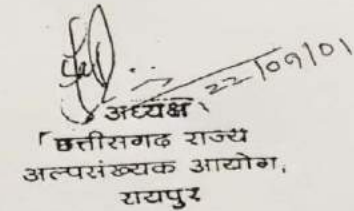 22/09/01
अध्यक्ष
छत्तीसगढ़ राज्य
अल्पसंख्यक आयोग,
रायपुर